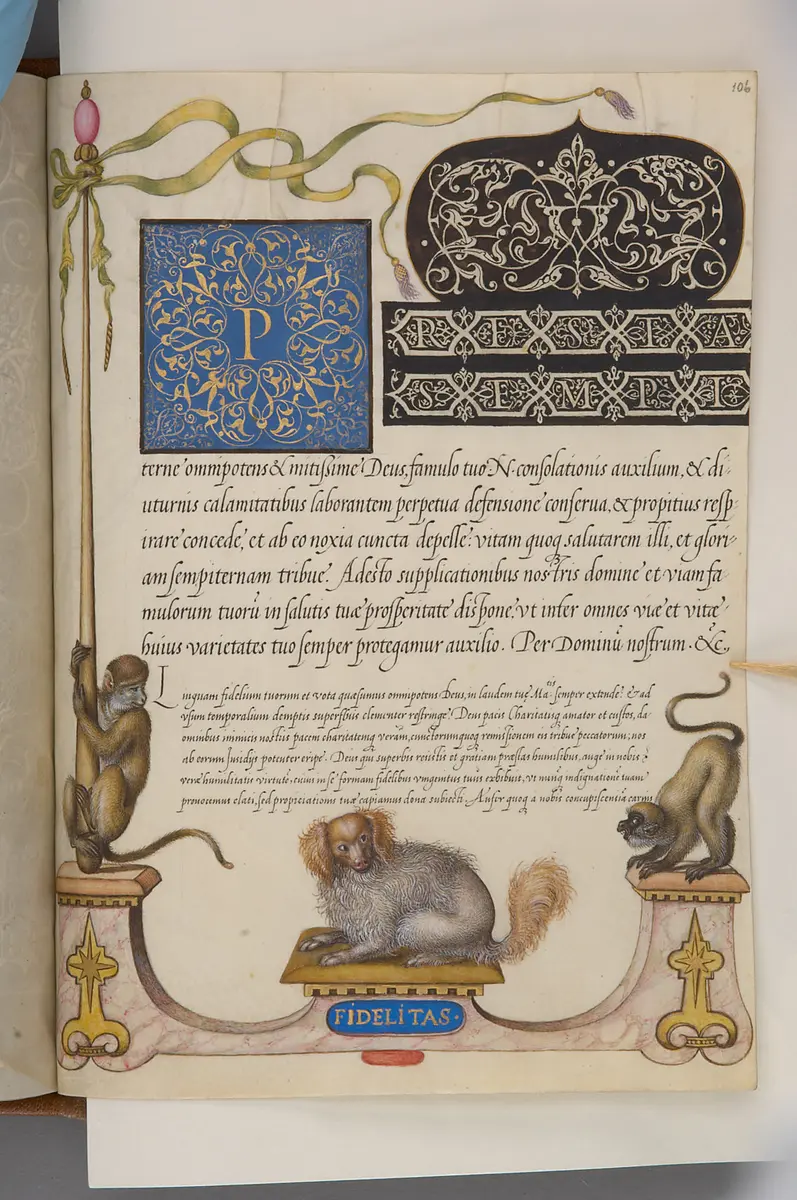 106
P
RESTA
SEMPI
terne omnipotens & mitißime Deus, famulo tuo N. consolationis auxilium, & di-
uturnis calamitatibus laborantem perpetua defensione conserua, & propitius resp-
irare concede, et ab eo noxia cuncta depelle: vitam quoq. salutarem illi, et glori-
am sempiternam tribue. Adesto supplicationibus nostris domine et viam fa-
mulorum tuorũ in salutis tuæ prosperitate dispone: vt inter omnes viæ et vitæ
huius varietates tuo semper protegamur auxilio. Per Dominũ nostrum. &c.
Linguam fidelium tuorum et vota quæsumus omnipotens Deus, in laudem tuę Ma.tis semper extende: & ad
vsum temporalium demptis superfluis clementer restringe. Deus pacis Charitatisq amator et custos, da
omnibus inimicis nostris pacem charitatemq veram, cunctorumquoq remissionem eis tribue peccatorum: nos
ab eorum Insidijs potenter eripe. Deus qui superbis resistis et gratiam præstas humilibus, auge in nobis
veræ humilitatis virtutẽ, cuius in se formam fidelibus vnigenitus tuus exhibuit, vt nunq indignationẽ tuam
prouocemus elati, sed propiciationis tuæ capiamus dona subiecti. Aufer quoq a nobis concupiscentiã carnis
FIDELITAS.